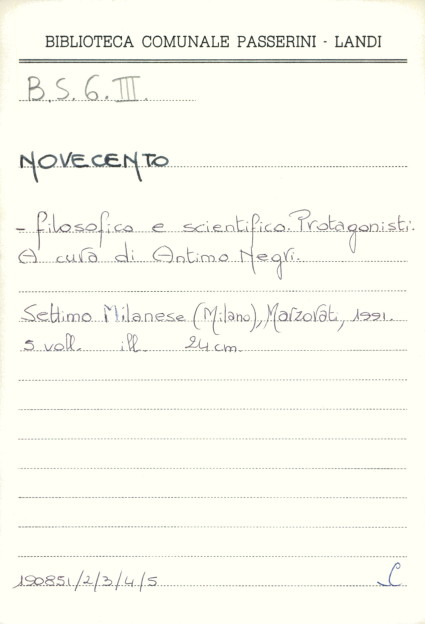 BIBLIOTECA COMUNALE PASSERINI - LANDI
B.S.6.III.
NOVECENTO
- filosofico e scientifico. Protagonisti.
A cura di Antimo Negri.
Settimo Milanese (Milano), Marzorati, 1991.
5 voll. ill. 24 cm.
190851/2/3/4/5